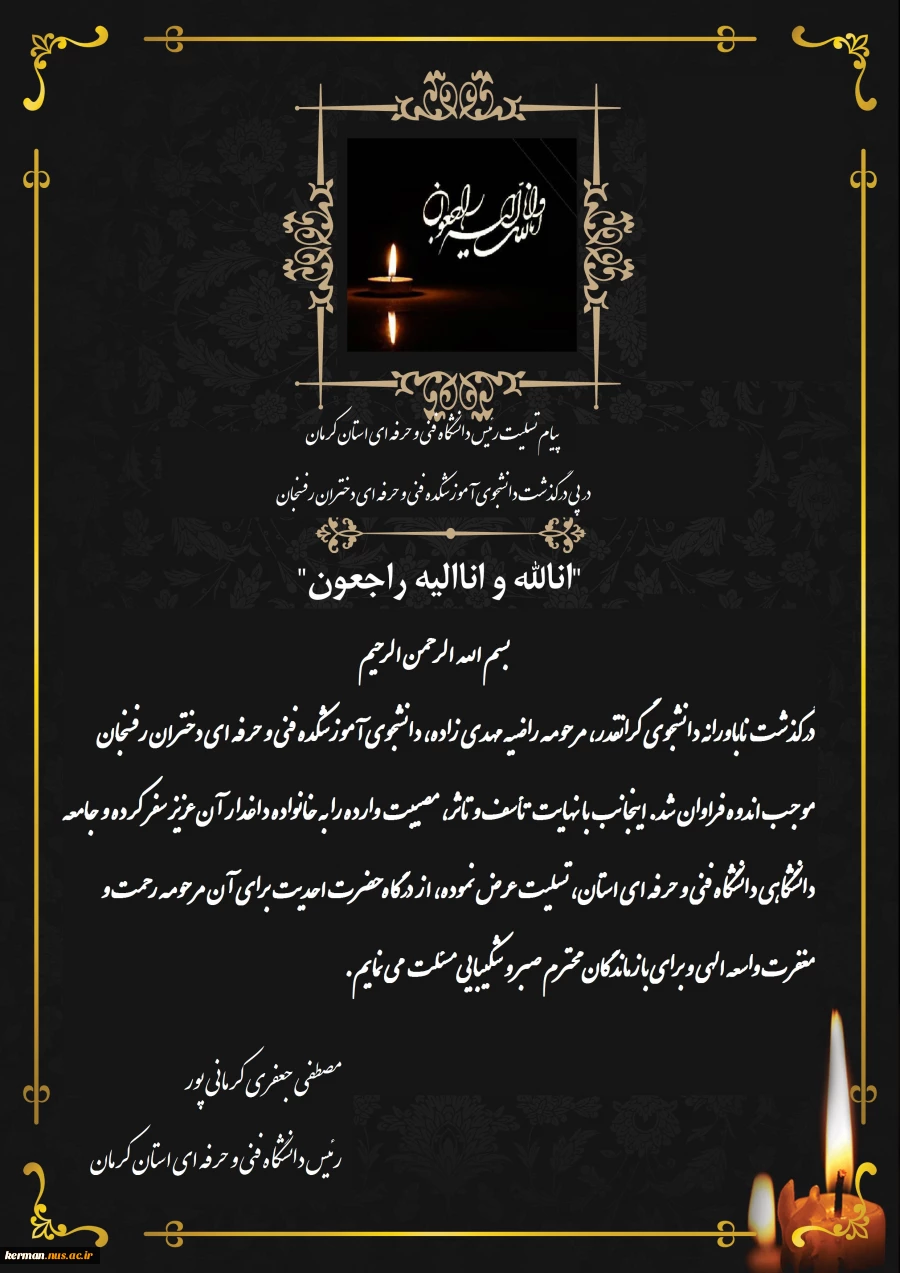 انالله و
انا الیه راجعون
پیام تسلیت رئیس دانشگاه فنی و حرفه ای استان کرمان
در پی درگذشت دانشجوی آموزشکده فنی و حرفه ای دختران رفسنجان
"انالله و اناالیه راجعون"
بسم الله الرحمن الرحیم
درگذشت ناباورانه دانشجوی گرانقدر، مرحومه راضیه مهدی زاده، دانشجوی آموزشکده فنی و حرفه ای دختران رفسنجان
موجب اندوه فراوان شد. اینجانب با نهایت تأسف و تاثر، مصیبت وارده را به خانواده داغدار آن عزیز سفر کرده و جامعه
دانشگاهی دانشگاه فنی و حرفه ای استان، تسلیت عرض نموده، از درگاه حضرت احدیت برای آن مرحومه رحمت و
مغفرت واسعه الهی و برای بازماندگان محترم صبر و شکیبایی مسئلت می نمایم.
مصطفی جعفری کرمانی پور
رئیس دانشگاه فنی و حرفه ای استان کرمان
kerman.nus.ac.ir